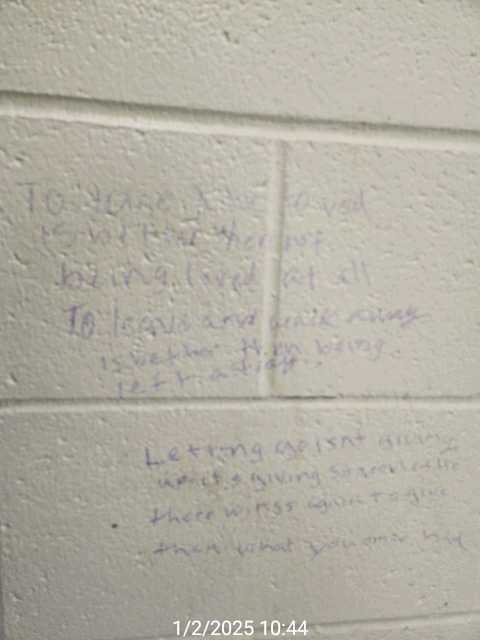 To have
is better then not
being loved at all
To leave and walk away
is better then being
left
Letting go isnt giving
up its giving
there wings again to give
them what you once had
1/2/2025 10:44